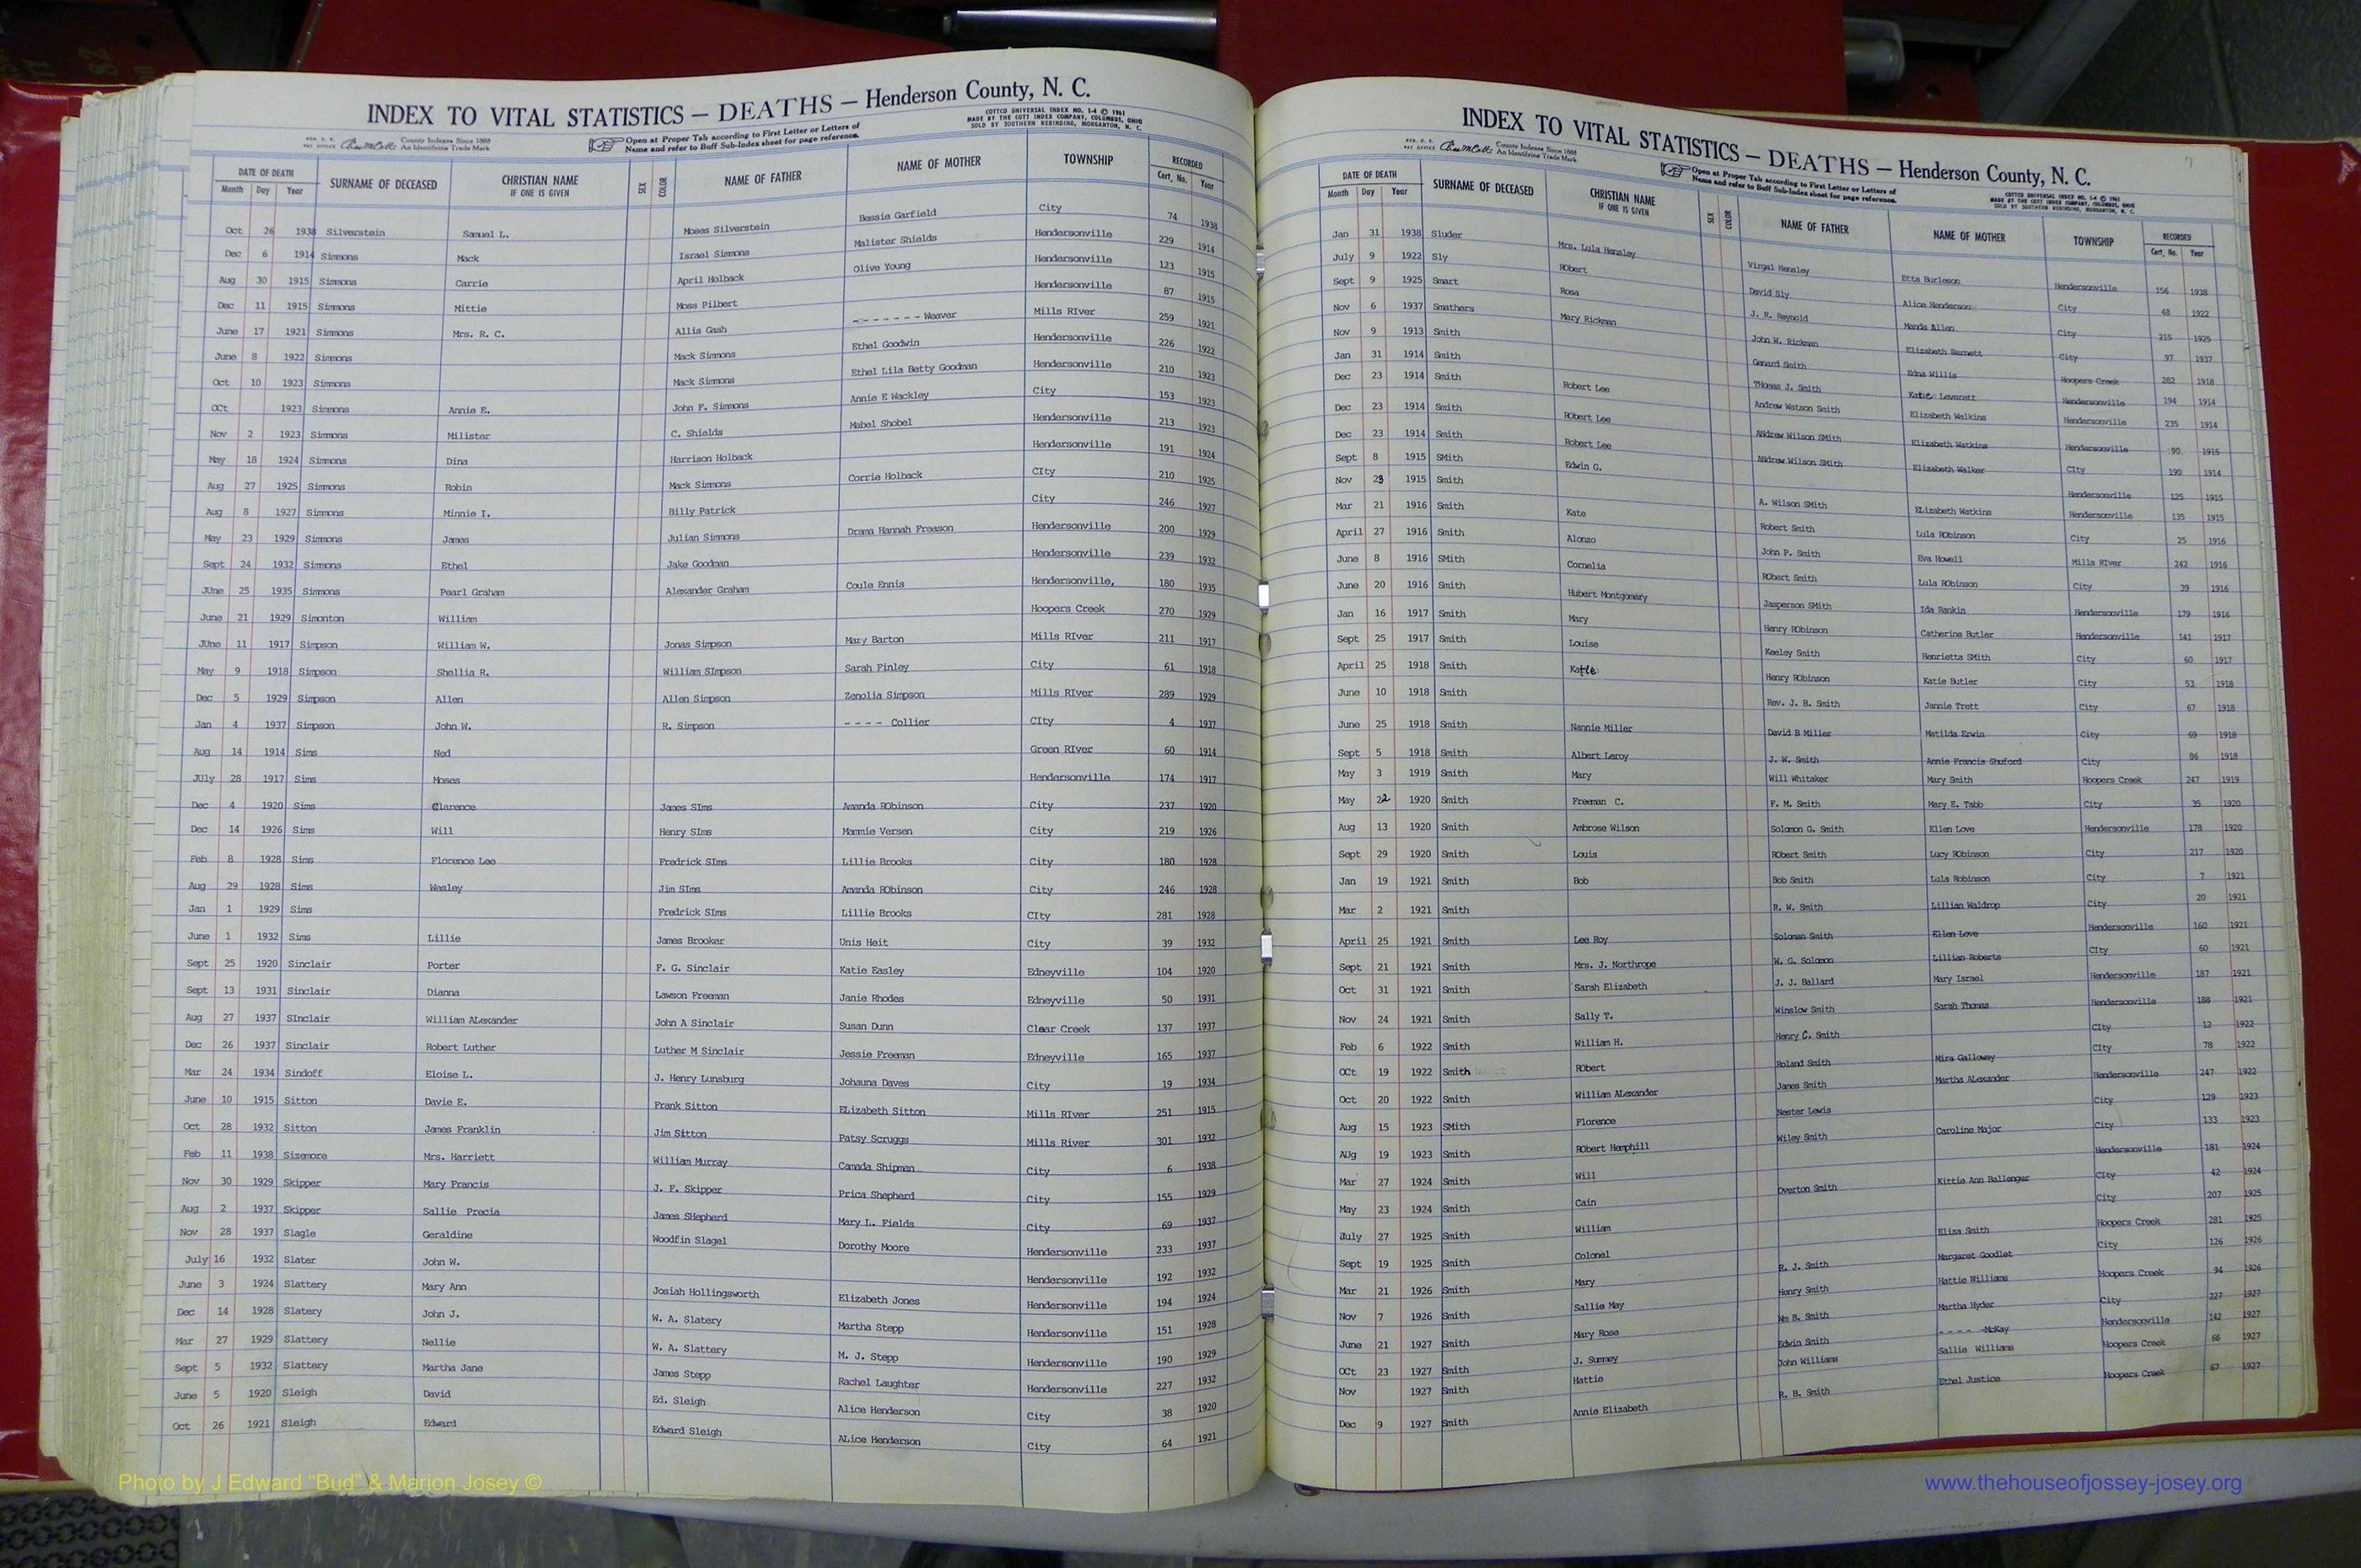 INDEX TO VITAL STATISTICS — DEATHS — Henderson County, N. C.
County Indexes Since 1888
An Identifying Trade Mark
Open at Proper Tab according to First Letter or Letters of
Name and refer to Buff Sub-Index sheet for page reference.
COTTCO UNIVERSAL INDEX NO. 1-4 © 1961
MADE BY THE COTT INDEX COMPANY, COLUMBUS, OHIO
SOLD BY SOUTHERN REBINDING, MORGANTON, N. C.
DATE OF DEATH SURNAME OF DECEASED CHRISTIAN NAME IF ONE IS GIVEN SEX COLOR NAME OF FATHER NAME OF MOTHER TOWNSHIP RECORDED
Month Day Year Cert. No. Year
Oct 26 1938 Silverstein Samuel L. Moses Silverstein Bessie Garfield City 74 1938
Dec 6 1914 Simmons Mack Israel Simmons Malister Shields Hendersonville 229 1914
Aug 30 1915 Simmons Carrie April Holback Olive Young Hendersonville 123 1915
Dec 11 1915 Simmons Mittie Moss Pilbert Hendersonville 87 1915
June 17 1921 Simmons Mrs. R. C. Allis Gash - - - - - - - Weaver Mills RIver 259 1921
June 8 1922 Simmons Mack Simmons Ethel Goodwin Hendersonville 226 1922
Oct 10 1923 Simmons Mack Simmons Ethel Lila Betty Goodman Hendersonville 210 1923
OCt 1923 Simmons Annie E. John F. Simmons Annie E Wackley City 153 1923
Nov 2 1923 Simmons Milister C. Shields Mabel Shobel Hendersonville 213 1923
May 18 1924 Simmons Dina Harrison Holback Hendersonville 191 1924
Aug 27 1925 Simmons Robin Mack Simmons Corrie Holback CIty 210 1925
Aug 8 1927 Simmons Minnie I. Billy Patrick City 246 1927
May 23 1929 Simmons James Julian Simmons Drana Hannah Freason Hendersonville 200 1929
Sept 24 1932 Simmons Ethel Jake Goodman Hendersonville 239 1932
JUne 25 1935 Simmons Pearl Graham Alexander Graham Coula Ennis Hendersonville, 180 1935
June 21 1929 Simonton William Hoopers Creek 270 1929
JUne 11 1917 Simpson William W. Jonas Simpson Mary Barton Mills RIver 211 1917
May 9 1918 Simpson Shellia R. William SImpson Sarah Finley City 61 1918
Dec 5 1929 Simpson Allen Allen Simpson Zenolia Simpson Mills RIver 289 1929
Jan 4 1937 Simpson John W. R. Simpson - - - - Collier CIty 4 1937
Aug 14 1914 Sims Ned Green RIver 60 1914
JUly 28 1917 Sims Moses Hendersonville 174 1917
Dec 4 1920 Sims Clarence James SIms Amanda RObinson City 237 1920
Dec 14 1926 Sims Will Henry SIms Mammie Versen City 219 1926
Feb 8 1928 Sims Florence Lee Fredrick SIms Lillie Brooks City 180 1928
Aug 29 1928 Sims Wesley Jim SIms Amanda RObinson City 246 1928
Jan 1 1929 Sims Fredrick SIms Lillie Brooks CIty 281 1928
June 1 1932 Sims Lillie James Brooker Unis Heit City 39 1932
Sept 25 1920 Sinclair Porter F. G. Sinclair Katie Easley Edneyville 104 1920
Sept 13 1931 Sinclair Dianna Lawson Freeman Janie Rhodes Edneyville 50 1931
Aug 27 1937 SInclair William ALexander John A Sinclair Susan Dunn Clear Creek 137 1937
Dec 26 1937 Sinclair Robert Luther Luther M Sinclair Jessie Freeman Edneyville 165 1937
Mar 24 1934 Sindoff Eloise L. J. Henry Lunsburg Johauna Daves City 19 1934
June 10 1915 Sitton Davie E. Frank Sitton ELizabeth Sitton Mills RIver 251 1915
Oct 28 1932 Sitton James Franklin Jim Sitton Patsy Scruggs Mills River 301 1932
Feb 11 1938 Sizemore Mrs. Harriett William Murray Canada Shipman City 6 1938
Nov 30 1929 Skipper Mary Francis J. F. Skipper Prica Shepherd City 155 1929
Aug 2 1937 Skipper Sallie Precia James SHepherd Mary L. Fields City 69 1937
Nov 28 1937 Slagle Geraldine Woodfin Slagel Dorothy Moore Hendersonville 233 1937
July 16 1932 Slater John W. Hendersonville 192 1932
June 3 1924 Slattery Mary Ann Josiah Hollingsworth Elizabeth Jones Hendersonville 194 1924
Dec 14 1928 Slatery John J. W. A. Slatery Martha Stepp Hendersonville 151 1928
Mar 27 1929 Slattery Nellie W. A. Slattery M. J. Stepp Hendersonville 190 1929
Sept 5 1932 Slattery Martha Jane James Stepp Rachel Laughter Hendersonville 227 1932
June 5 1920 Sleigh David Ed. Sleigh Alice Henderson City 38 1920
Oct 26 1921 Sleigh Edward Edward Sleigh ALice Henderson City 64 1921
INDEX TO VITAL STATISTICS — DEATHS — Henderson County, N. C.
County Indexes Since 1888
An Identifying Trade Mark
Open at Proper Tab according to First Letter or Letters of
Name and refer to Buff Sub-Index sheet for page reference.
COTTCO UNIVERSAL INDEX NO. 1-4 © 1961
MADE BY THE COTT INDEX COMPANY, COLUMBUS, OHIO
SOLD BY SOUTHERN REBINDING, MORGANTON, N. C.
DATE OF DEATH SURNAME OF DECEASED CHRISTIAN NAME IF ONE IS GIVEN SEX COLOR NAME OF FATHER NAME OF MOTHER TOWNSHIP RECORDED
Month Day Year Cert. No. Year
Jan 31 1938 Sluder Mrs. Lula Hensley Virgal Hensley Etta Burleson Hendersonville 156 1938
July 9 1922 Sly RObert David Sly Alice Henderson City 48 1922
Sept 9 1925 Smart Rosa J. R. Reynold Manda Allen City 215 1925
Nov 6 1937 Smathers Mary Rickman John W. Rickman Elizabeth Barnett City 97 1937
Nov 9 1913 Smith Genard Smith Edna Willis Hoopers Creek 282 1918
Jan 31 1914 Smith THomas J. Smith Katie Leverett Hendersonville 194 1914
Dec 23 1914 Smith Robert Lee Andrew Watson Smith Elizabeth Walkins Hendersonville 235 1914
Dec 23 1914 Smith RObert Lee ANdrew Wilson SMith Elizabeth Watkins Hendersonville 90 1915
Dec 23 1914 Smith Robert Lee ANdrew Wilson SMith Elizabeth Walker CIty 190 1914
Sept 8 1915 SMith Edwin G. Hendersonville 125 1915
Nov 23 1915 Smith A. Wilson SMith ELizabeth Watkins Hendersonville 135 1915
Mar 21 1916 Smith Kate Robert Smith Lula RObinson City 25 1916
April 27 1916 Smith Alonzo John P. Smith Eva Howell Mills RIver 242 1916
June 8 1916 SMith Cornelia RObert Smith Lula RObinson City 39 1916
June 20 1916 Smith Hubert Montgomery Jasperson SMith Ida Rankin Hendersonville 179 1916
Jan 16 1917 Smith Mary Henry RObinson Catherine Butler Hendersonville 141 1917
Sept 25 1917 Smith Louise Keeley Smith Henrietta SMith City 60 1917
April 25 1918 Smith Katie Henry RObinson Katie Butler City 53 1918
June 10 1918 Smith Rev. J. B. Smith Jannie Trett City 67 1918
June 25 1918 Smith Nannie Miller David B Miller Matilda Erwin City 69 1918
Sept 5 1918 Smith Albert Leroy J. W. Smith Annie Francis Shuford City 86 1918
May 3 1919 Smith Mary Will Whitaker Mary Smith Hoopers Creek 247 1919
May 22 1920 Smith Freeman C. F. M. Smith Mary E. Tabb City 35 1920
Aug 13 1920 Smith Ambrose Wilson Solomon G. Smith Ellen Love Hendersonville 178 1920
Sept 29 1920 Smith Louis RObert Smith Lucy RObinson City 217 1920
Jan 19 1921 Smith Bob Bob Smith Lula Robinson City 7 1921
Mar 2 1921 Smith R. W. Smith Lillian Waldrop City 20 1921
April 25 1921 Smith Lee Roy Soloman Smith Ellen Love Hendersonville 160 1921
Sept 21 1921 Smith Mrs. J. Northrope W. G. Solomon Lillian Roberts CIty 60 1921
Oct 31 1921 Smith Sarah Elizabeth J. J. Ballard Mary Israel Hendersonville 187 1921
Nov 24 1921 Smith Sally T. Winslow Smith Sarah Thomas Hendersonville 188 1921
Feb 6 1922 Smith William H. Henry C. Smith CIty 12 1922
OCt 19 1922 Smith RObert Roland Smith Mira Galloway CIty 78 1922
Oct 20 1922 Smith William ALexander James Smith Martha ALexander Hendersonville 247 1922
Aug 15 1923 SMith Florence Nester Lewis City 129 1923
AUg 19 1923 Smith RObert Hemphill Wiley Smith Caroline Major City 133 1923
Mar 27 1924 Smith Will Hendersonville 181 1924
May 23 1924 Smith Cain Overton Smith Kittie Ann Ballenger City 42 1924
July 27 1925 Smith William City 207 1925
Sept 19 1925 Smith Colonel Eliza Smith Hoopers Creek 281 1925
Mar 21 1926 Smith Mary R. J. Smith Margaret Goodlet City 126 1926
Nov 7 1926 Smith Sallie May Henry Smith Hattie Williams Hoopers Creek 94 1926
June 21 1927 Smith Mary Rose Wm B. Smith Martha Hyder City 227 1927
OCt 23 1927 Smith J. Sumney Edwin Smith - - - - -McKay Hendersonville 142 1927
Nov 1927 Smith Hattie John Williams Sallie Williams Hoopers Creek 66 1927
Dec 9 1927 Smith Annie Elizabeth R. B. Smith Ethel Justice Hoopers Creek 67 1927
Photo by J Edward "Bud" & Marion Josey ©
www.thehouseofjossey-josey.org